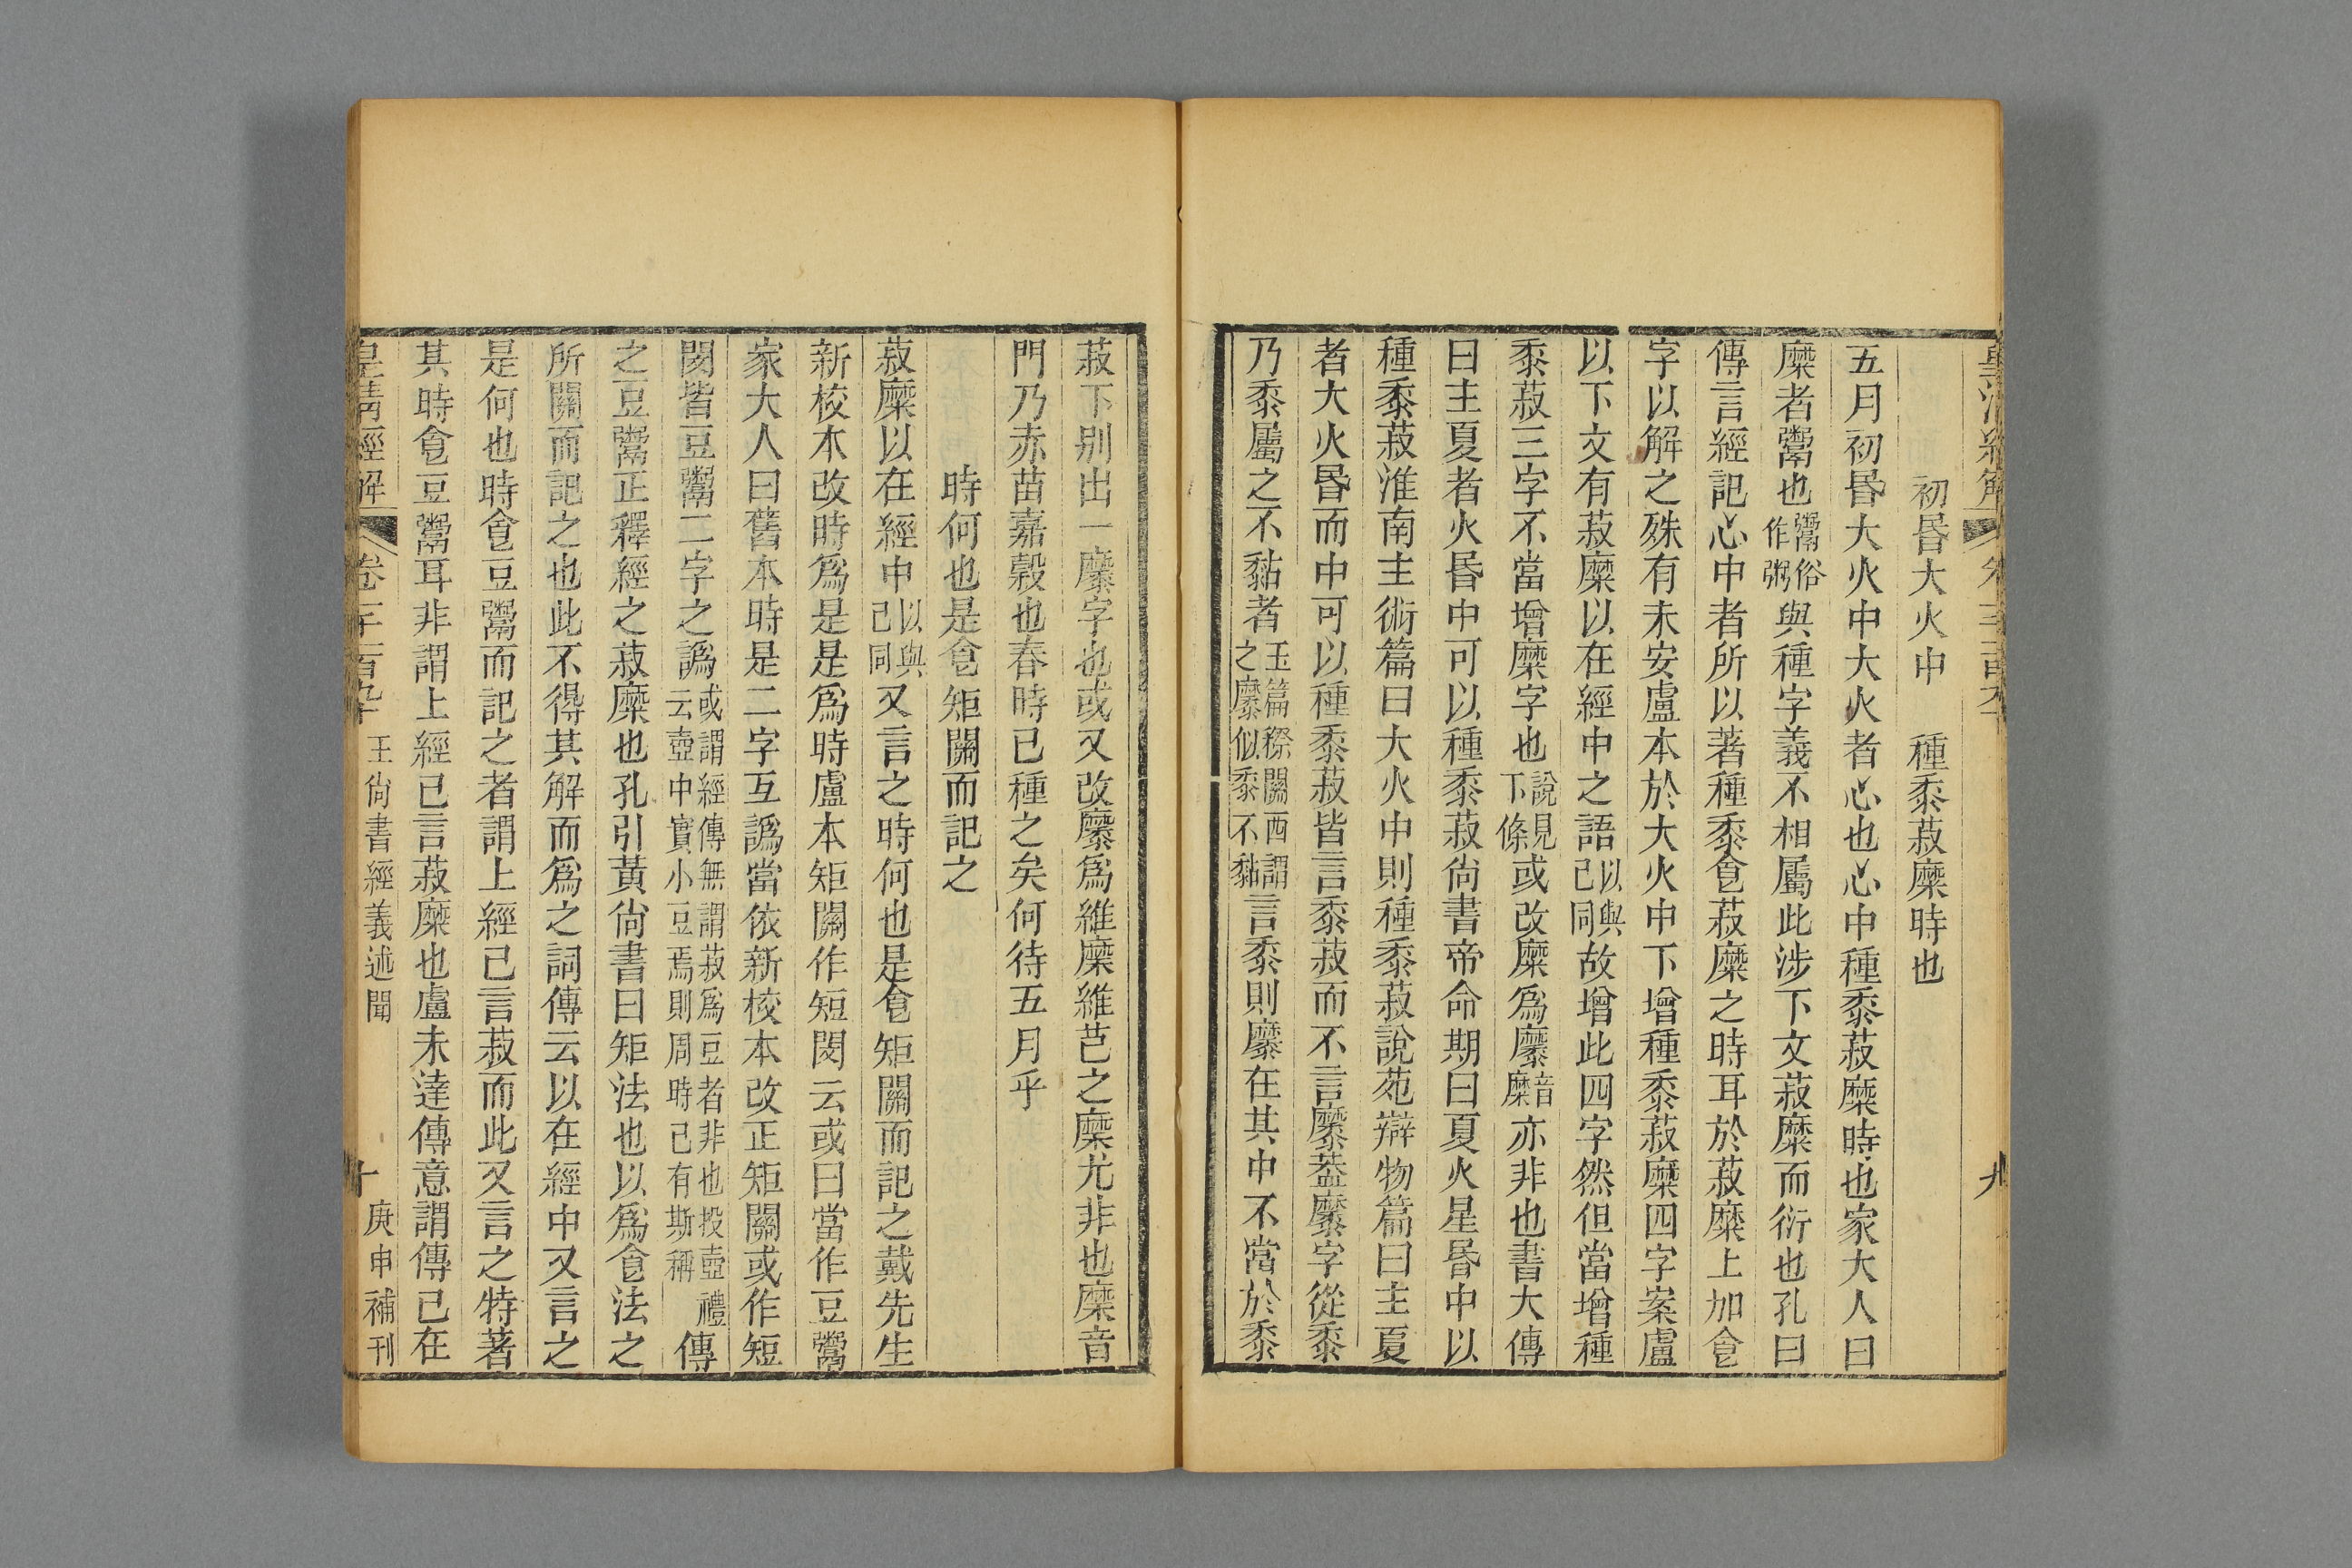 皇清經解
九
初昬大火中　種黍菽糜時也
五月初昬大火中大火者心也心中種黍菽糜時也家大人曰
糜者鬻也鬻俗作粥與種字義不相屬此涉下文菽糜而衍也孔曰
傳言經記心中者所以著種黍食菽糜之時耳於菽糜上加食
字以解之殊有未安盧本於大火中下增種黍菽糜四字案盧
以下文有菽糜以在經中之語以與已同故增此四字然但當增種
黍菽三字不當增糜字也說見下條或改糜爲穈音糜亦非也書大傳
曰主夏者火昬中可以種黍菽尙書帝命期曰夏火星昬中以
種黍菽淮南主術篇曰大火中則種黍菽說苑辯物篇曰主夏
者大火昬而中可以種黍菽皆言黍菽而不言穈葢穈字從黍
乃黍屬之不黏者玉篇穄關西謂之穈似黍不黏言黍則穈在其中不當於黍
菽下別出一穈字也或又改穈爲維糜維芑之糜尤非也糜音
門乃赤苗嘉穀也春時已種之矣何待五月乎
時何也是食矩關而記之
菽糜以在經中以與已同又言之時何也是食矩關而記之戴先生
新校本改時爲是是爲時盧本矩關作短閔云或曰當作豆鬻
家大人曰舊本時是二字互譌當依新校本改正矩關或作短
閔皆豆鬻二字之譌或謂經傳無謂菽爲豆者非也投壺禮云壺中實小豆焉則周時已有斯稱傳
之豆鬻正釋經之菽糜也孔引黃尙書曰矩法也以爲食法之
所關而記之也此不得其解而爲之詞傳云以在經中又言之
是何也時食豆鬻而記之者謂上經已言菽而此又言之特著
其時食豆鬻耳非謂上經已言菽糜也盧未達傳意謂傳已在
皇清經解　卷　王尙書經義述聞　十　庚申補刊